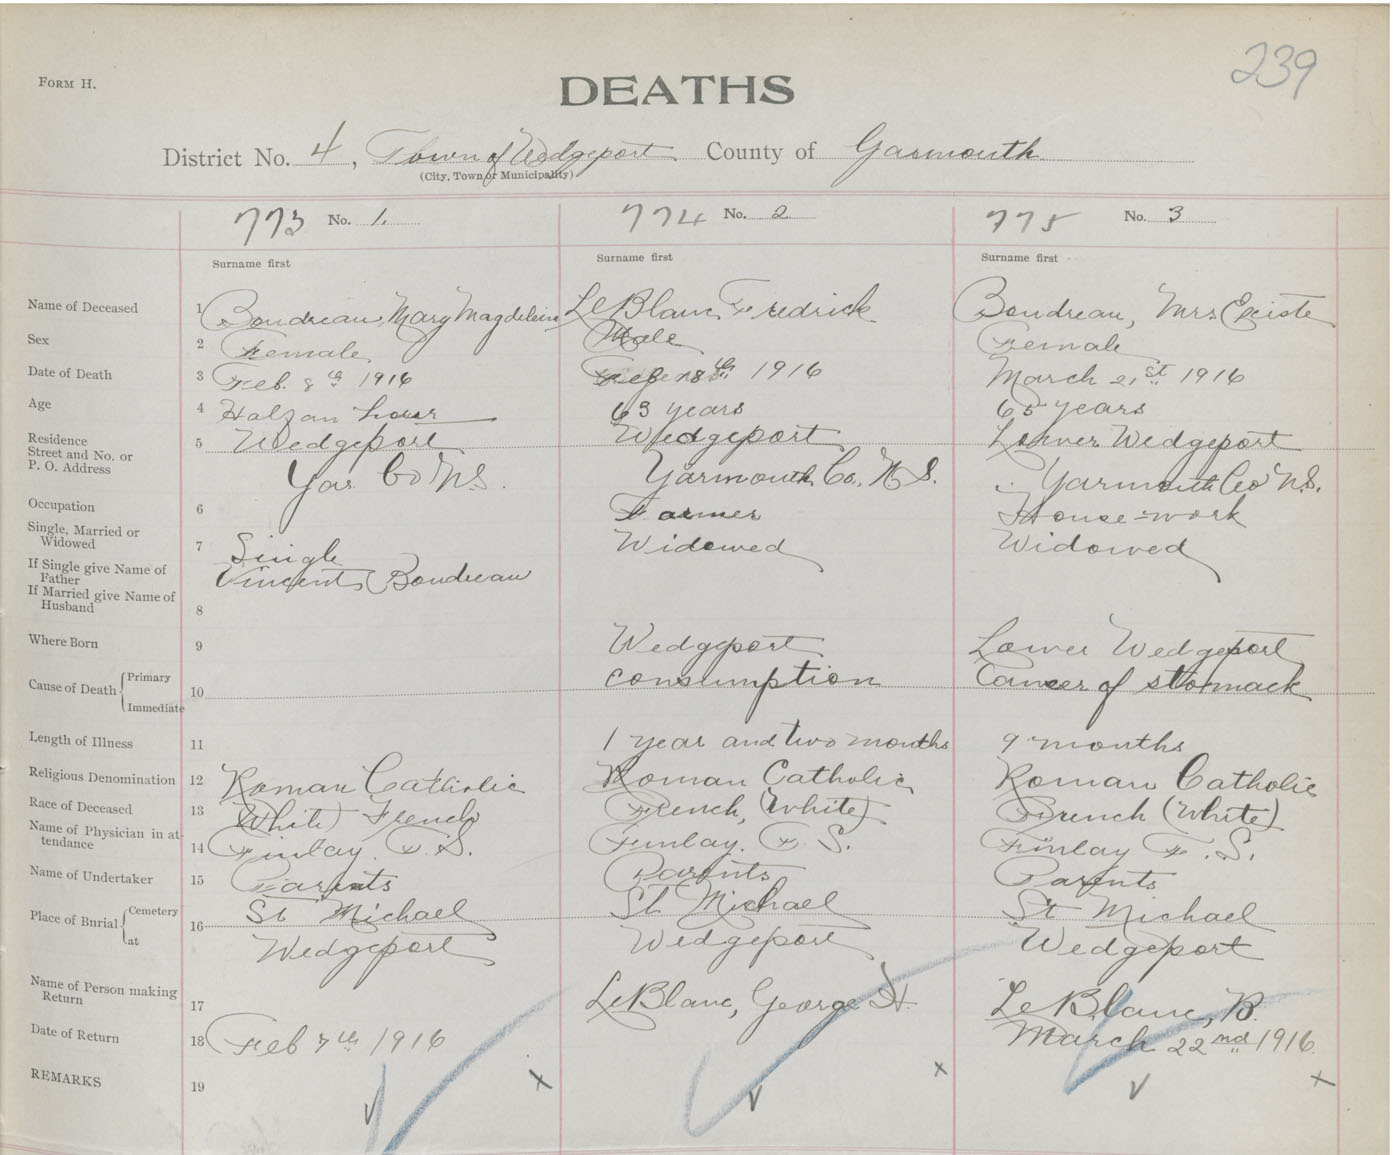 239
FORM H.
DEATHS
District No. 4, Town of Wedgeport County of Yarmouth
(City, Town or Municipality)
773 No. 1. 774 No. 2 775 No. 3
Surname first Surname first Surname first
Name of Deceased 1 Boudreau, Mary Magdeleine LeBlanc, Fredrick Boudreau, Mrs
Sex 2 Female Male Female
Date of Death 3 Feb. 8th 1916 Feb 18th 1916 March 21st 1916
Age 4 Half an hour 63 years 65 years
Residence
Street and No. or
P. O. Address
5 Wedgeport Wedgeport Lower Wedgeport
Yar Co NS. Yarmouth Co. N S. Yarmouth Co N.S.
Occupation 6 Farmer House-work
Single, Married or
Widowed
7 Single Widowed Widowed
If Single give Name of
Father
Vincent Boudreau
If Married give Name of
Husband
8
Where Born 9 Wedgeport Lower Wedgeport
Cause of Death Primary
Immediate
10 consumption Cancer of stomack
Length of Illness 11 1 year and two months 9 months
Religious Denomination 12 Roman Catholic Roman Catholic Roman Catholic
Race of Deceased 13 White) French French, (White) French (White)
Name of Physician in at-
tendance
14 Finlay. F. S. Finlay. F. S. Finlay F. S.
Name of Undertaker 15 Parents Parents Parents
Place of Burial Cemetery
at
16 St Michael St Michael St Michael
Wedgeport Wedgeport Wedgeport
Name of Person making
Return
17 LeBlanc, George H. LeBlanc, B.
Date of Return 18 Feb 7th 1916 March 22nd 1916
REMARKS 19